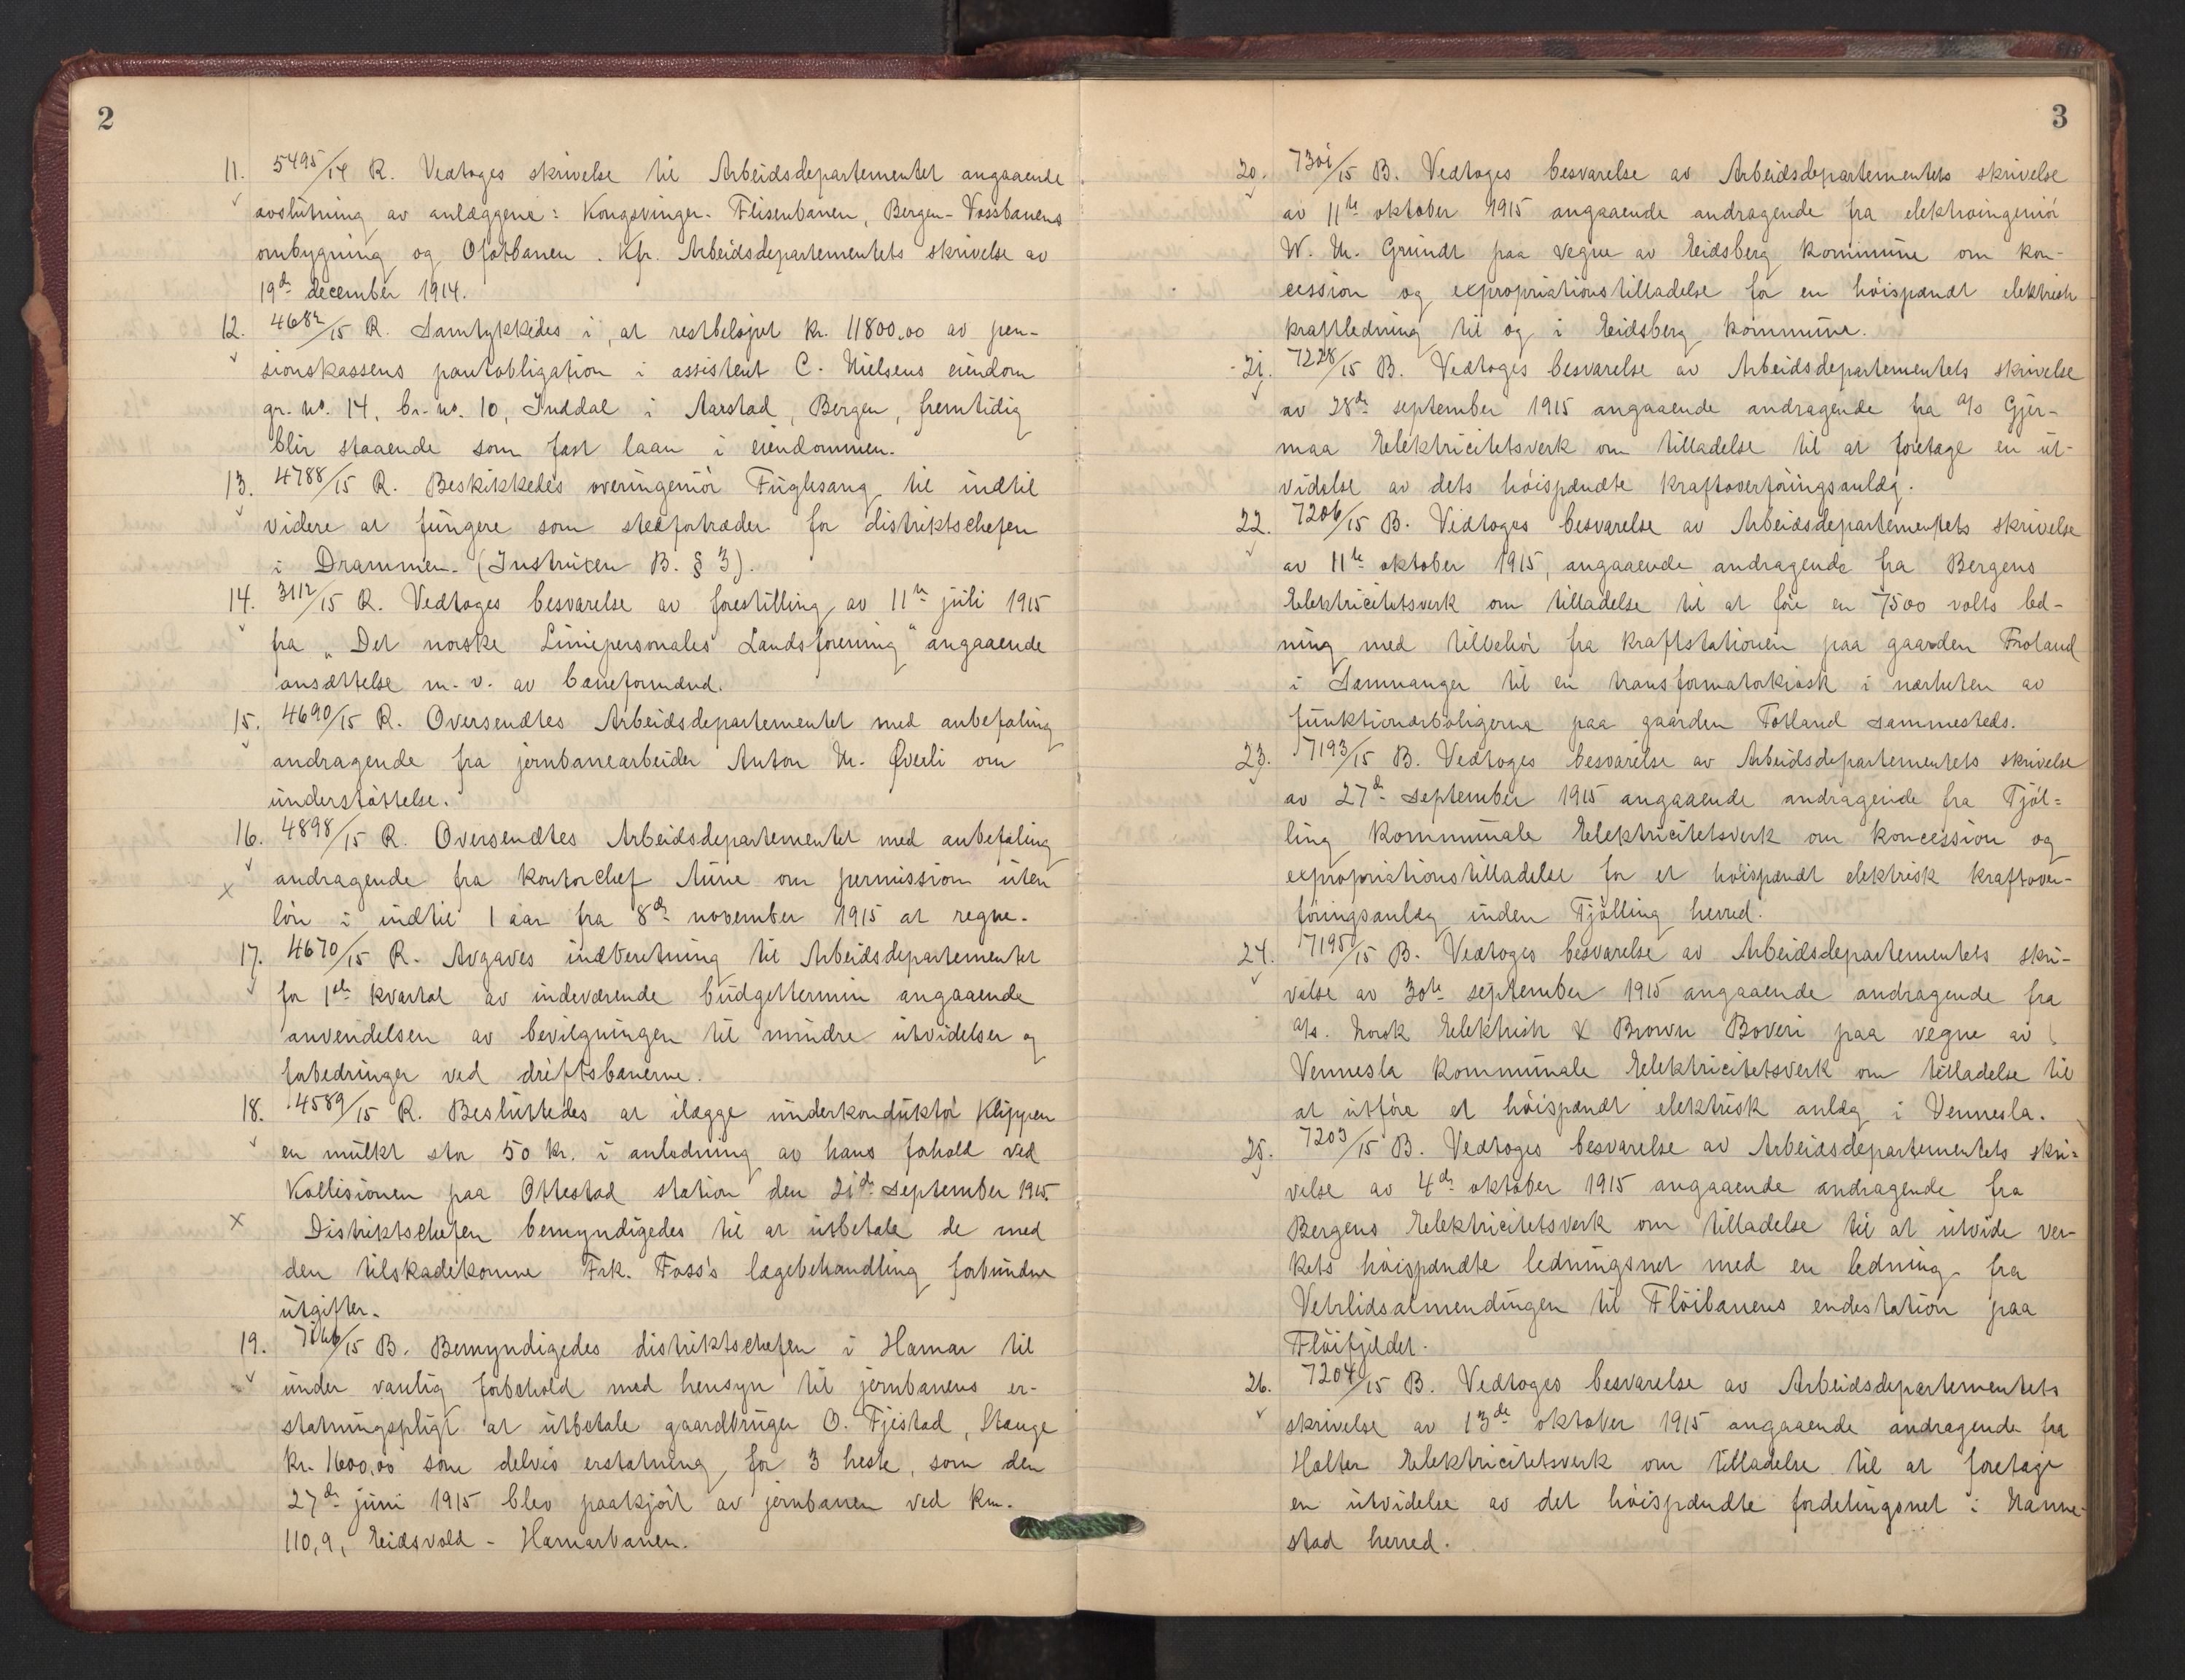 2
11. 5495/14 R. Vedtoges skrivelse til Arbeidsdepartementet angaaende
avslutning av anlæggene: Kongsvinger-Flisenbanen, Bergen-Vossbanens
ombygning og Ofotbanen. Kfr. Arbeidsdepartementets skrivelse av
19de december 1914.
12. 4682/15 R. Samtykkedes i, at restbeløpet kr. 11800,00 av pen-
sionskassens pantobligation i assistent C. Nielsens eiendom
gr. no. 14, br. no. 10, Inddal i Aarstad, Bergen, fremtidig
blir staaende som fast laan i eiendommen.
13. 4788/15 R. Beskikkedes overingeniör Fuglesang til indtil
videre at fungere som stedfortræder for distriktschefen
i Drammen. (Instruxen B. § 3).
14. 3112/15 R. Vedtoges besvarelse av forestilling av 11te juli 1915
fra „Det norske Liniepersonales Landsforening" angaaende
ansættelse m. v. av baneformænd.
15. 4690/15 R. Oversendtes Arbeidsdepartementet med anbefaling
andragende fra jernbanearbeider Anton M. Øverli om
understöttelse.
16. 4898/15 R. Oversendtes Arbeidsdepartementet med anbefaling
x andragende fra kontorchef Aune om permission uten
lön i indtil 1 aar fra 8de november 1915 at regne.
17. 4670/15 R. Avgaves indberetning til Arbeidsdepartementet
for 1ste kvartal av indeværende budgettermin angaaende
anvendelsen av bevilgningen til mindre utvidelser og
forbedringer ved driftsbanerne.
18. 4589/15 R. Besluttedes at ilægge underkonduktör Klippen
en mulkt stor 50 kr. i anledning av hans forhold ved
Kollisionen paa Ottestad station den 21de september 1915.
x Distriktschefen bemyndigedes til at utbetale de med
den tilskadekomne Frk. Foss's lægebehandling forbundne
utgifter.
19. 7166/15 B. Bemyndigedes distriktschefen i Hamar til
under vanlig forbehold med hensyn til jernbanens er-
statningspligt at utbetale gaardbruger O. Fjestad, Stange
kr. 1600,00 som delvis erstatning for 3 heste, som den
27de juni 1915 blev paakjört av jernbanen ved km.
110,9, Eidsvold - Hamarbanen.
3
20. 7301/15 B. Vedtoges besvarelse av Arbeidsdepartementets skrivelse
av 11te oktober 1915 angaaende andragende fra elektroingeniör
W. M. Grundt paa vegne av Eidsberg kommune om kon-
cession og expropriationstilladelse for en höispændt elektrisk
kraftledning til og i Eidsberg kommune.
21. 7228/15 B. Vedtoges besvarelse av Arbeidsdepartementets skrivelse
av 28de september 1915 angaaende andragende fra a/s Gjer-
maa Elektricitetsverk om tilladelse til at foretage en ut-
videlse av dets höispændte kraftoverföringsanlæg.
22. 7206/15 B. Vedtoges besvarelse av Arbeidsdepartementets skrivelse
av 11te oktober 1915, angaaende andragende fra Bergens
Elektricitetsverk om tilladelse til at före en 7500 volts led-
ning med tilbehör fra kraftstationen paa gaarden Froland
i Samnanger til en transformatorkiosk i nærheten av
funktionærboligerne paa gaarden Totland sammesteds.
23. 7193/15 B. Vedtoges besvarelse av Arbeidsdepartementets skrivelse
av 27de september 1915 angaaende andragende fra Tjöl=
ling kommunale Elektricitetsverk om koncession og
expropriationstilladelse for et höispændt elektrisk kraftover-
föringsanlæg inden Tjölling herred.
24. 7195/15 B. Vedtoges besvarelse av Arbeidsdepartementets skri-
velse av 30te september 1915 angaaende andragende fra
a/s. Norsk Elektrisk & Brown Boveri paa vegne av
Vennesla kommunale Elektricitetsverk om tilladelse til
at utföre et höispændt elektrisk anlæg i Vennesla.
25. 7203/15 B. Vedtoges besvarelse av Arbeidsdepartementets skri=
velse av 4de oktober 1915 angaaende andragende fra
Bergens Elektricitetsverk om tilladelse til at utvide ver-
kets höispændte ledningsnet med en ledning fra
Vetrlidsalmendingen til Flöibanens endestation paa
Flöifjeldet.
26. 7204/15 B. Vedtoges besvarelse av Arbeidsdepartementets
skrivelse av 13de oktober 1915 angaaende andragende fra
Holter Elektricitetsverk om tilladelse til at foretage
en utvidelse av det höispændte fordelingsnet i Nanne-
stad herred.